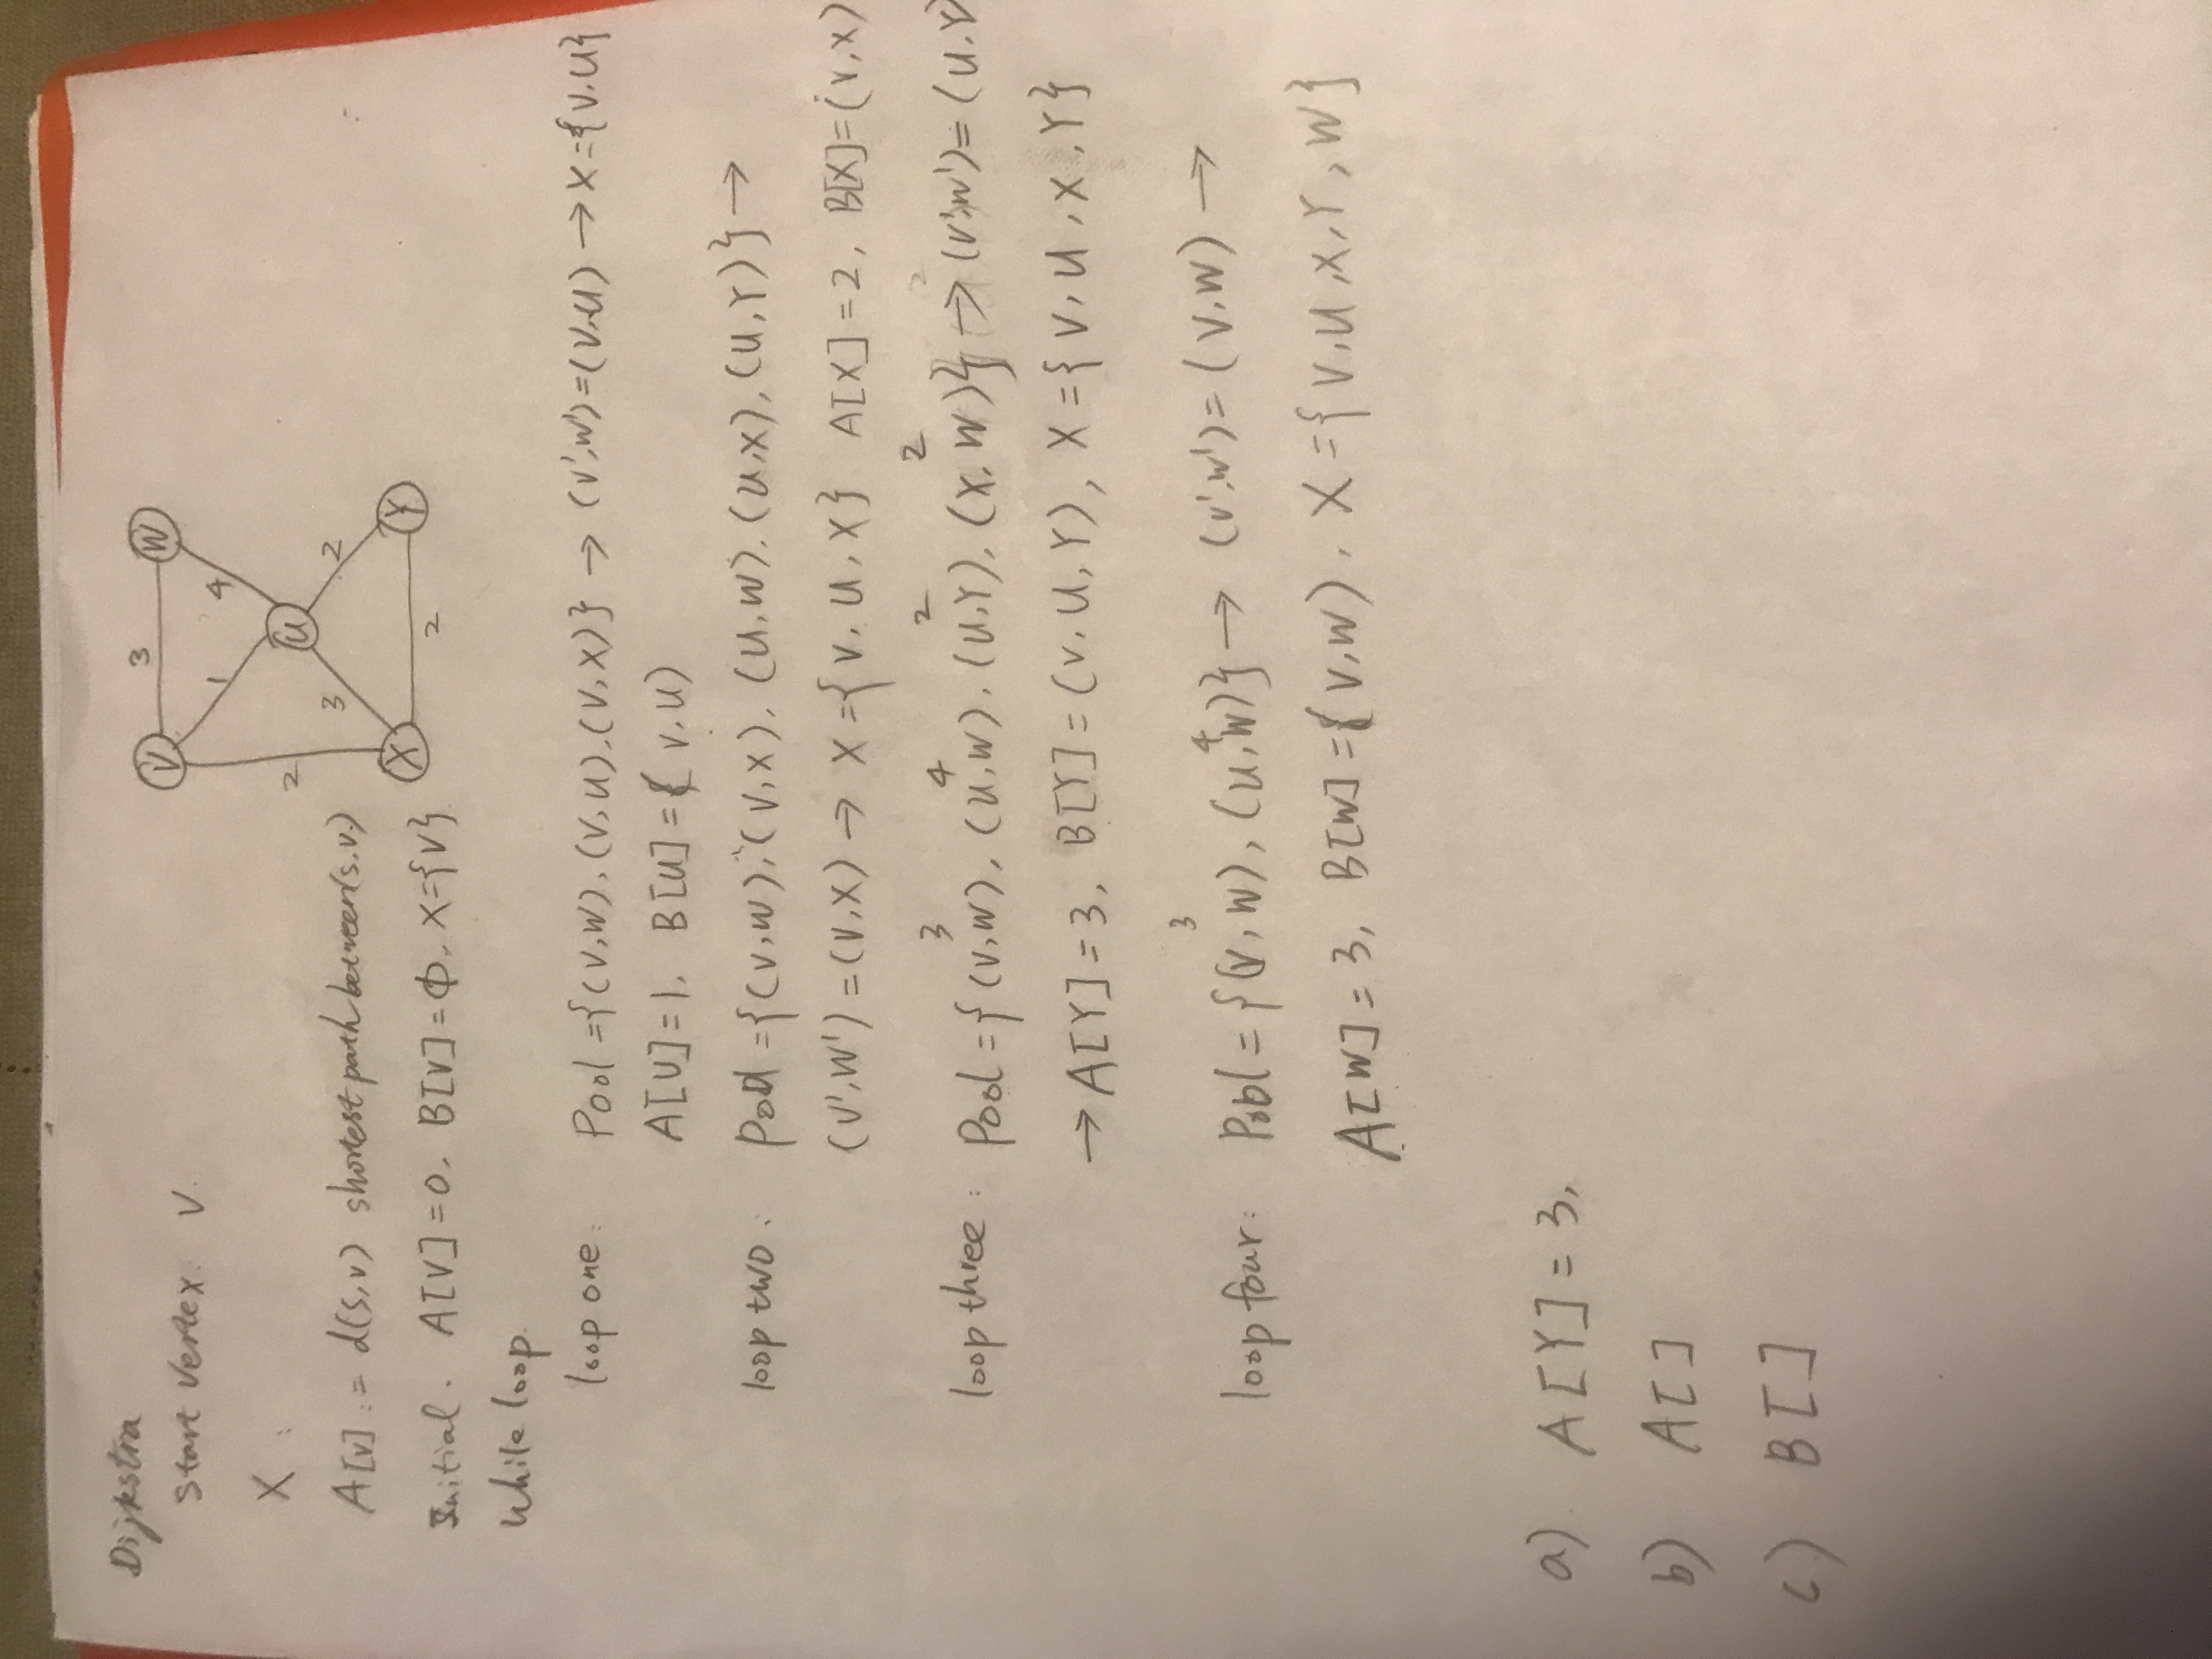 Dijkstra
Start Vertex: V.
X :
A[v] := d(s,v) shortest path between(s,v.)
Initial. A[V]=0, B[V]=Φ, X={V}
While loop.
V 3 W
1 4
2 U
3 2
X Y
2
loop one: Pool={(V,W),(V,U),(V,X)} → (v',w')=(V,U) → X={V,U}
A[U]=1, B[U]=(V,U)
loop two: Pool={(V,W),(V,X),(U,W),(U,X),(U,Y)} →
(v',w')=(V,X) → X={V,U,X} A[X]=2, B[X]=(V,X)
3 4 2 2
loop three: Pool={(V,W),(U,W),(U,Y),(X,W)} → (v',w')=(U,Y)
→ A[Y]=3, B[Y]=(V,U,Y), X={V,U,X,Y}
3 4
loop four: Pool={(V,W),(U,W)} → (v',w')=(V,W) →
A[W]=3, B[W]=(V,W), X={V,U,X,Y,W}
a) A[Y]=3,
b) A[]
c) B[]